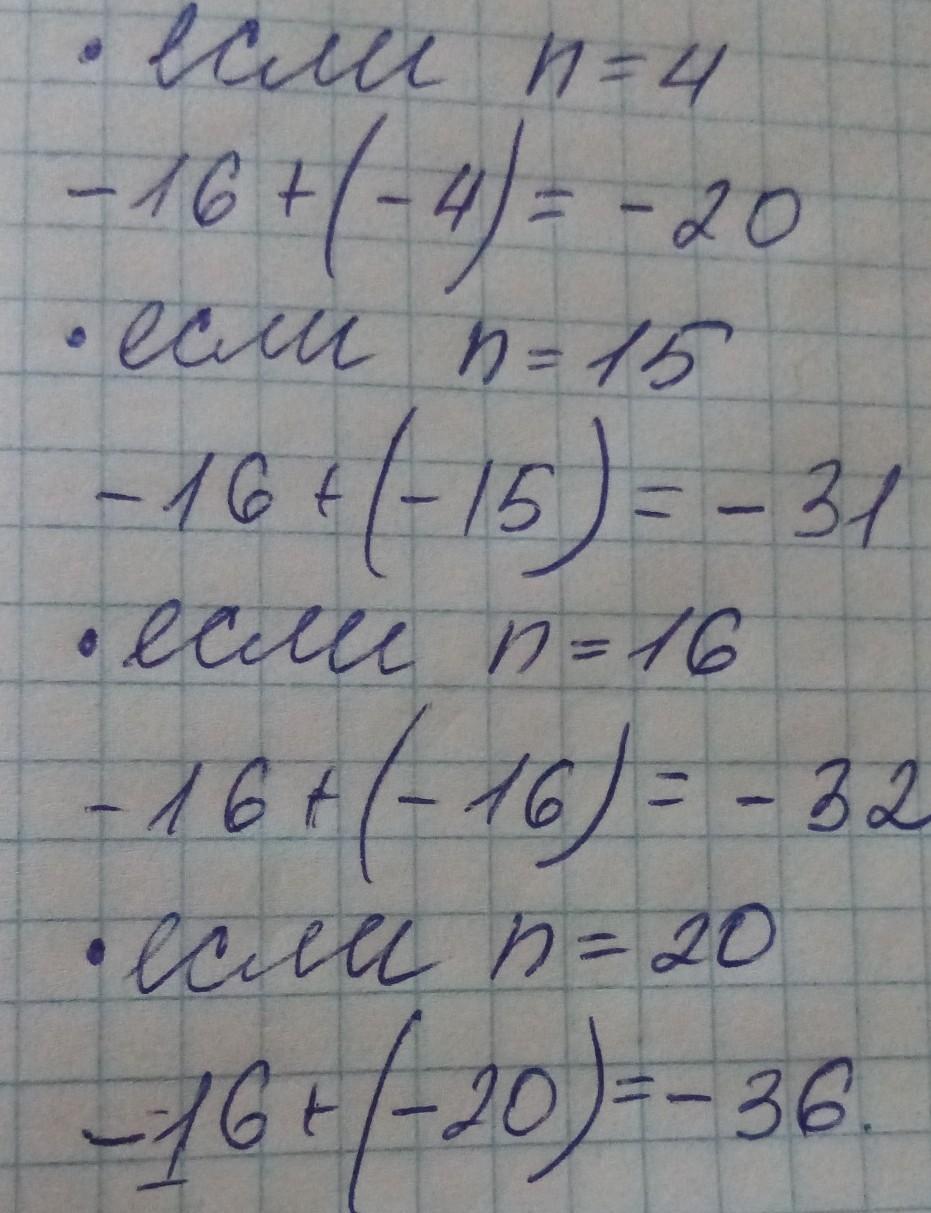 · если n = 4
- 16 + (- 4) = - 20
· если n = 15
- 16 + (- 15) = - 31
· если n = 16
- 16 + (- 16) = - 32
· если n = 20
- 16 + (- 20) = - 36.